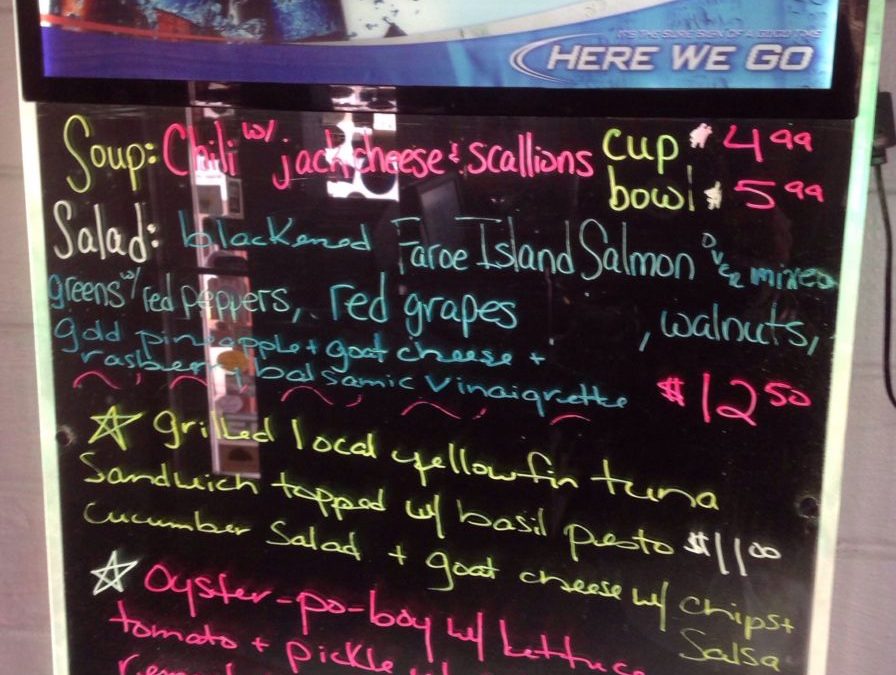 IT'S THE SURE SIGN OF A GOOD TIME
HERE WE GO
Soup: Chili w/ jack cheese & scallions cup $4.99
bowl $5.99
Salad: blackened Faroe Island Salmon over mixed
greens w/ red peppers, red grapes , walnuts,
gold pineapple + goat cheese +
rasberry balsamic vinaigrette $12.50
☆ grilled local yellowfin tuna
Sandwich topped w/ basil pesto $11.00
cucumber Salad + goat cheese w/ chips +
Salsa
☆ Oyster-po-boy w/ lettuce
tomato + pickle